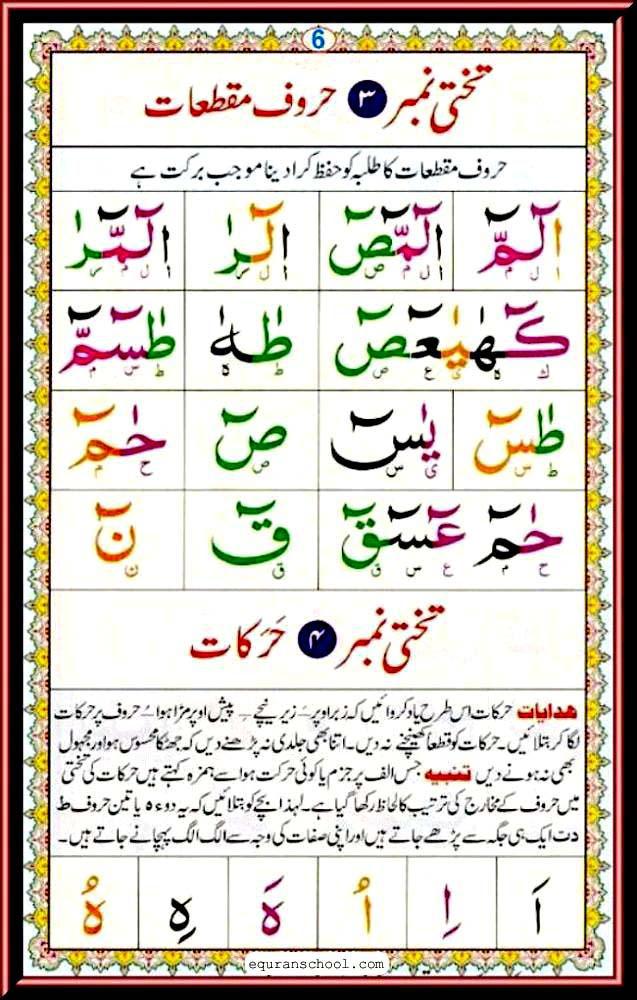 6
تختی نمبر ۳ حروف مقطعات
حروف مقطعات کا طلبہ کو حفظ کرا دینا موجب برکت ہے
الٓمّٓ الٓمّٓصٓ الٓرٰ الٓمّٓرٰ
ا ل م ا ل م ص ا ل ر ا ل م ر
كٓهٰيٰعٓصٓ طٰهٰ طٰسٓمّٓ
ک ہ ی ع ص ط ہ ط س م
طٰسٓ يٰسٓ صٓ حٰمٓ
ط س ی س ص ح م
حٰمٓ عٓسٓقٓ قٓ نٓ
ح م ع س ق ق ن
تختی نمبر ۴ حَرَکات
ھدایات حرکات اس طرح یاد کروائیں کہ زبر اوپر ـَ زیر نیچے ـِ پیش اوپر مڑا ہوا ـُ حروف پر حرکات
لگا کر بتلائیں۔ حرکات کو قطعاً کھینچنے نہ دیں۔ اتنا بھی جلدی نہ پڑھنے دیں کہ جھٹکا محسوس ہو اور مجہول
بھی نہ ہونے دیں تنبیہ جس الف پر جزم یا کوئی حرکت ہو اسے ہمزہ کہتے ہیں حرکات کی تختی
میں حروف کے مخارج کی ترتیب کا لحاظ رکھا گیا ہے۔ لہذا بچے کو بتلائیں کہ یہ دو ء ہ یا تین حروف ط
د ت ایک ہی جگہ سے پڑھے جاتے ہیں اور اپنی صفات کی وجہ سے الگ الگ پہچانے جاتے ہیں۔
اَ اِ اُ هَ هِ هُ
equranschool.com